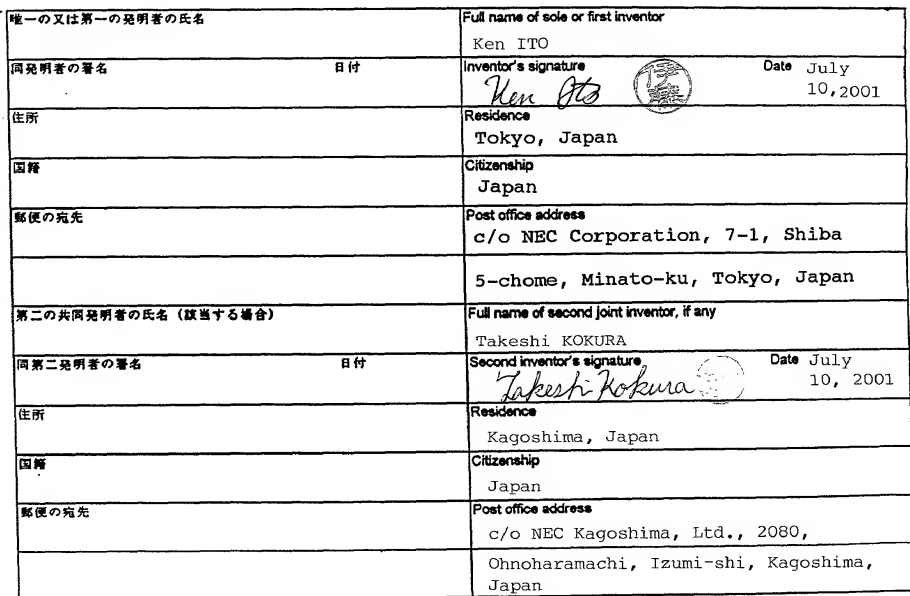 唯一の又は第一の発明者の氏名
Full name of sole or first inventor
Ken ITO
同発明者の署名 日付
Inventor's signature Date July
Ken Ito 10,2001
住所
Residence
Tokyo, Japan
国籍
Citizenship
Japan
郵便の宛先
Post office address
c/o NEC Corporation, 7-1, Shiba
5-chome, Minato-ku, Tokyo, Japan
第二の共同発明者の氏名（該当する場合）
Full name of second joint inventor, if any
Takeshi KOKURA
同第二発明者の署名 日付
Second inventor's signature Date July
Takeshi Kokura 10, 2001
住所
Residence
Kagoshima, Japan
国籍
Citizenship
Japan
郵便の宛先
Post office address
c/o NEC Kagoshima, Ltd., 2080,
Ohnoharamachi, Izumi-shi, Kagoshima,
Japan